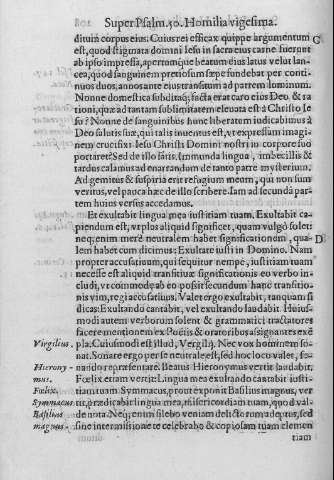 Super Psalm. 50. Homilia vigesima.
ditum corpus eius. Cuius rei efficax quippe argumentum C
est, quod stigmata domini Iesu in sacra eius carne fuerunt
ab ipso impressa, apertumque beatum eius latus velut lan-
cea, quod sanguinem pretiosum sæpe fundebat per conti-
nuos duos, annos ante eius transitum ad patrem luminum.
Nonne domestica subditaq; facta erat caro eius Deo & ra
tioni, quæ ad tantam sublimitatem eleuata est à Christo Ie
su? Nonne de sanguinibus hunc liberatum iudicabimus à
Deo salutis suæ, qui talis inuentus est, vt expressum imagi-
nem crucifixi Iesu Christi Domini nostri in corpore suo
portaret? Sed de illo satis. Immunda lingua, imbecillis &
tardus calamus ad enarrandum de tanto patre mysterium.
Ad gemitus & suspiria erit refugium meum, qui non sum
veritus, vel pauca hæc de illo scribere. Iam ad secundã par-
tem huius versus accedamus.
Et exultabit lingua mea iustitiam tuam. Exultabit ca-
piendum est, vt plus aliquid significet, quam vulgò solet:
neq; enim merè neutralem habet significationem, qua- D
lem habet cum dicimus: Exultate iusti in Domino. Nam
propter accusatiuum, qui sequitur nempè, iustitiam tuam
necesse est aliquid transitiuæ significationis eo verbo in-
cludi, vt commodè ab eo possit secundum hanc transitio-
nis vim, regi accusatiuus. Valet ergo exultabit, tanquam si
dicas: Exultando cantabit, vel exultando laudabit. Huius-
modi autem verborum solent & grammatici tractatores
facere mentionem ex Poëtis & oratoribus assignantes exẽ
Virgilius. pla. Cuiusmodi est illud, Vergilij. Nec vox hominem so-
nat. Sonare ergo per se neutrale est, sed hoc loco valet, so-
Hierony- nando repræsentare. Beatus Hieronymus vertit laudabit.
mus. Fœlix etiam vertit: Lingua mea exultando cantabit iusti-
Fœlix. tiam tuam. Symmacus, prout exponit Basilius magnus, ver
Symmacus tit, prædicabit lingua mea, misericordiam tuam, quod val
Basilius de nota. Neq; enim silebo veniam delictorum adeptus, sed
magnus. sine intermissione te celebrabo & copiosam tuam clemen
tiam